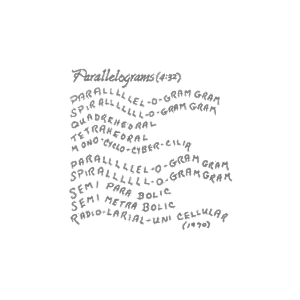 Parallelograms (4:32)
PARALLLLLEL-O-GRAM GRAM
SPIRALLLLLL-O-GRAM GRAM
QUADREHEDRAL
TETRAHEDRAL
MONO-CYCLO-CYBER-CILIA
PARALLLLLEL-O-GRAM GRAM
SPIRALLLLLL-O-GRAM GRAM
SEMI PARA BOLIC
SEMI METRA BOLIC
RADIO-LARIAL-UNI CELLULAR
(1970)